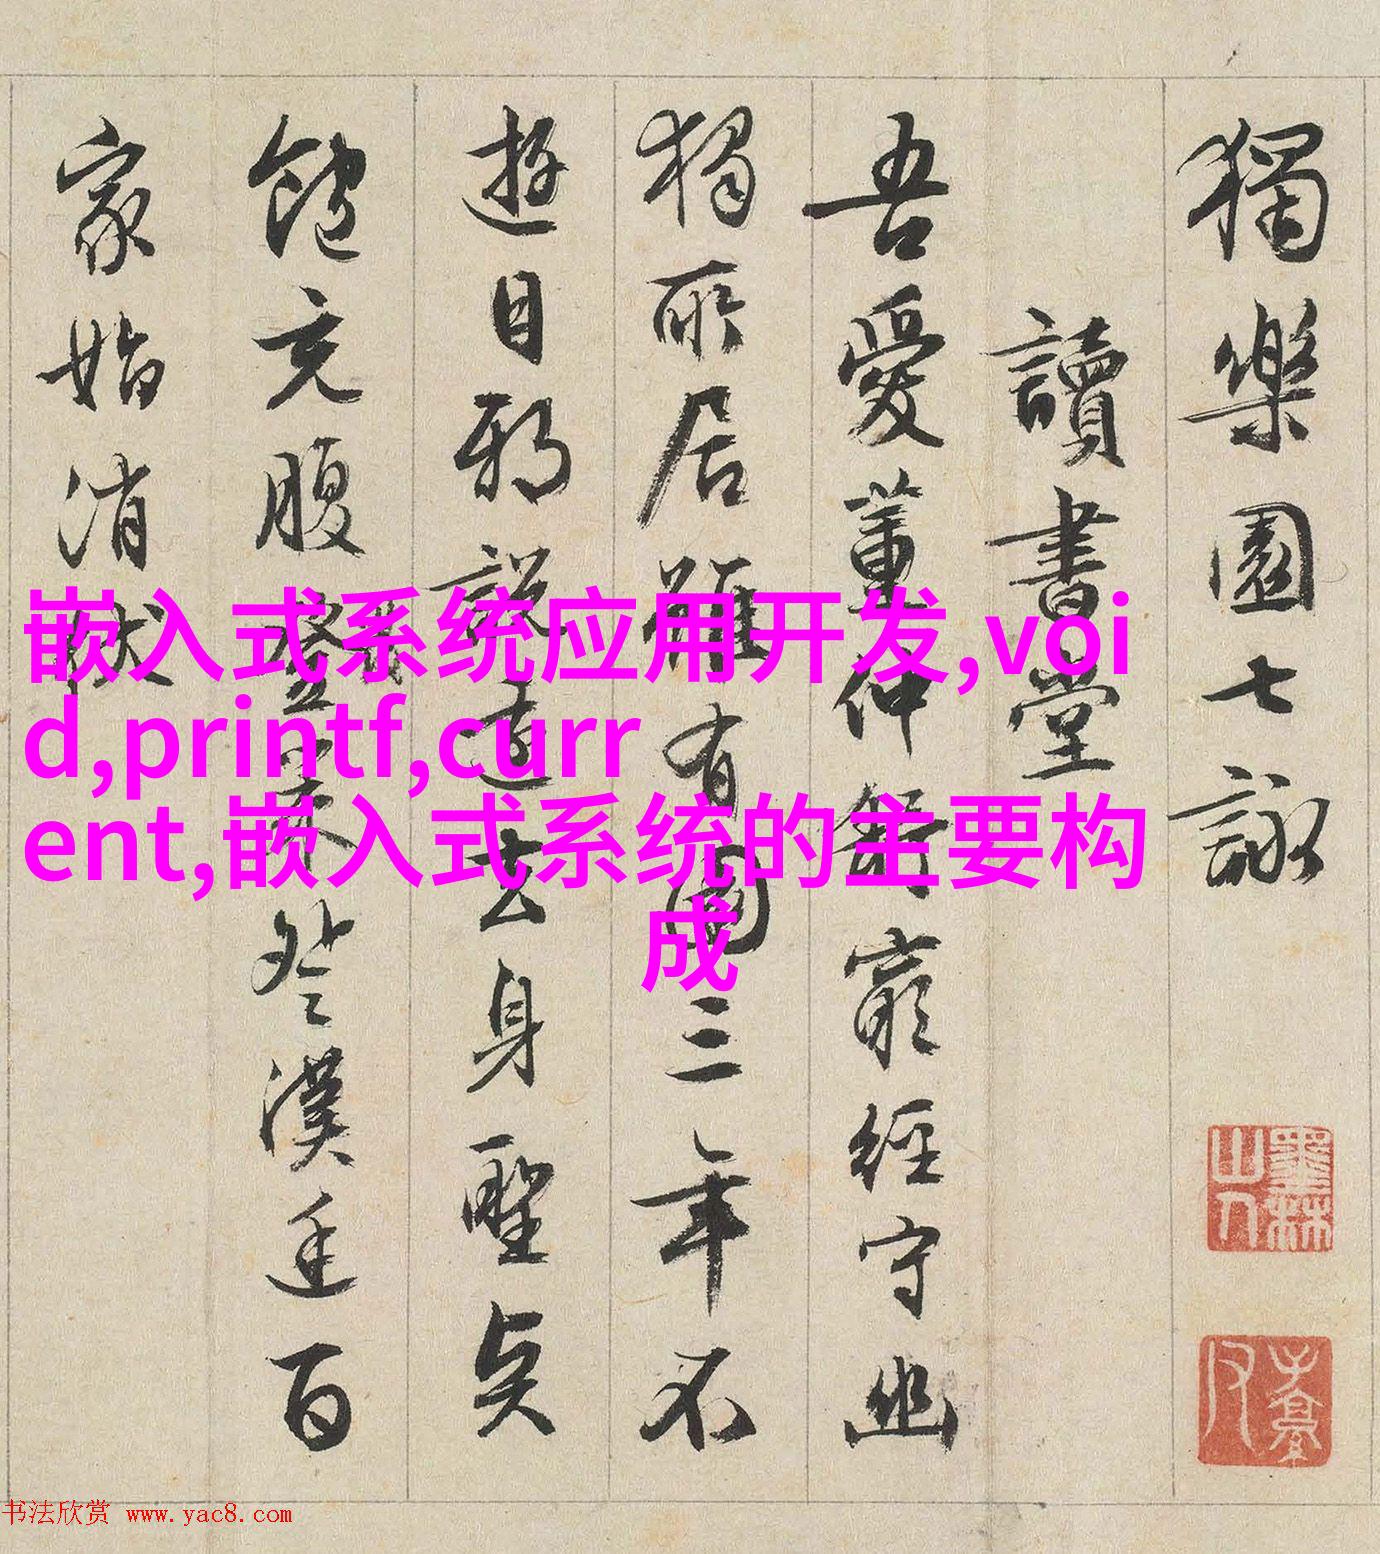 獨樂園七詠
讀書堂
吾愛董仲舒窮經守幽
獨所居雖有園三年不
遊目邪說遠去身聖
飽充腹發策登漢廷百
家始消伏
墨林山人
嵌入式系统应用开发,voi
d,printf,curr
ent,嵌入式系统的主要构
成
书法欣赏 www.yac8.com